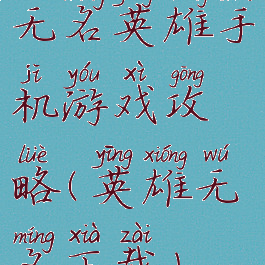 无名英雄手
jī yóu xì gōng
机游戏攻
lüè yīng xióng wú
略(英雄无
míng xià zài
名下载)